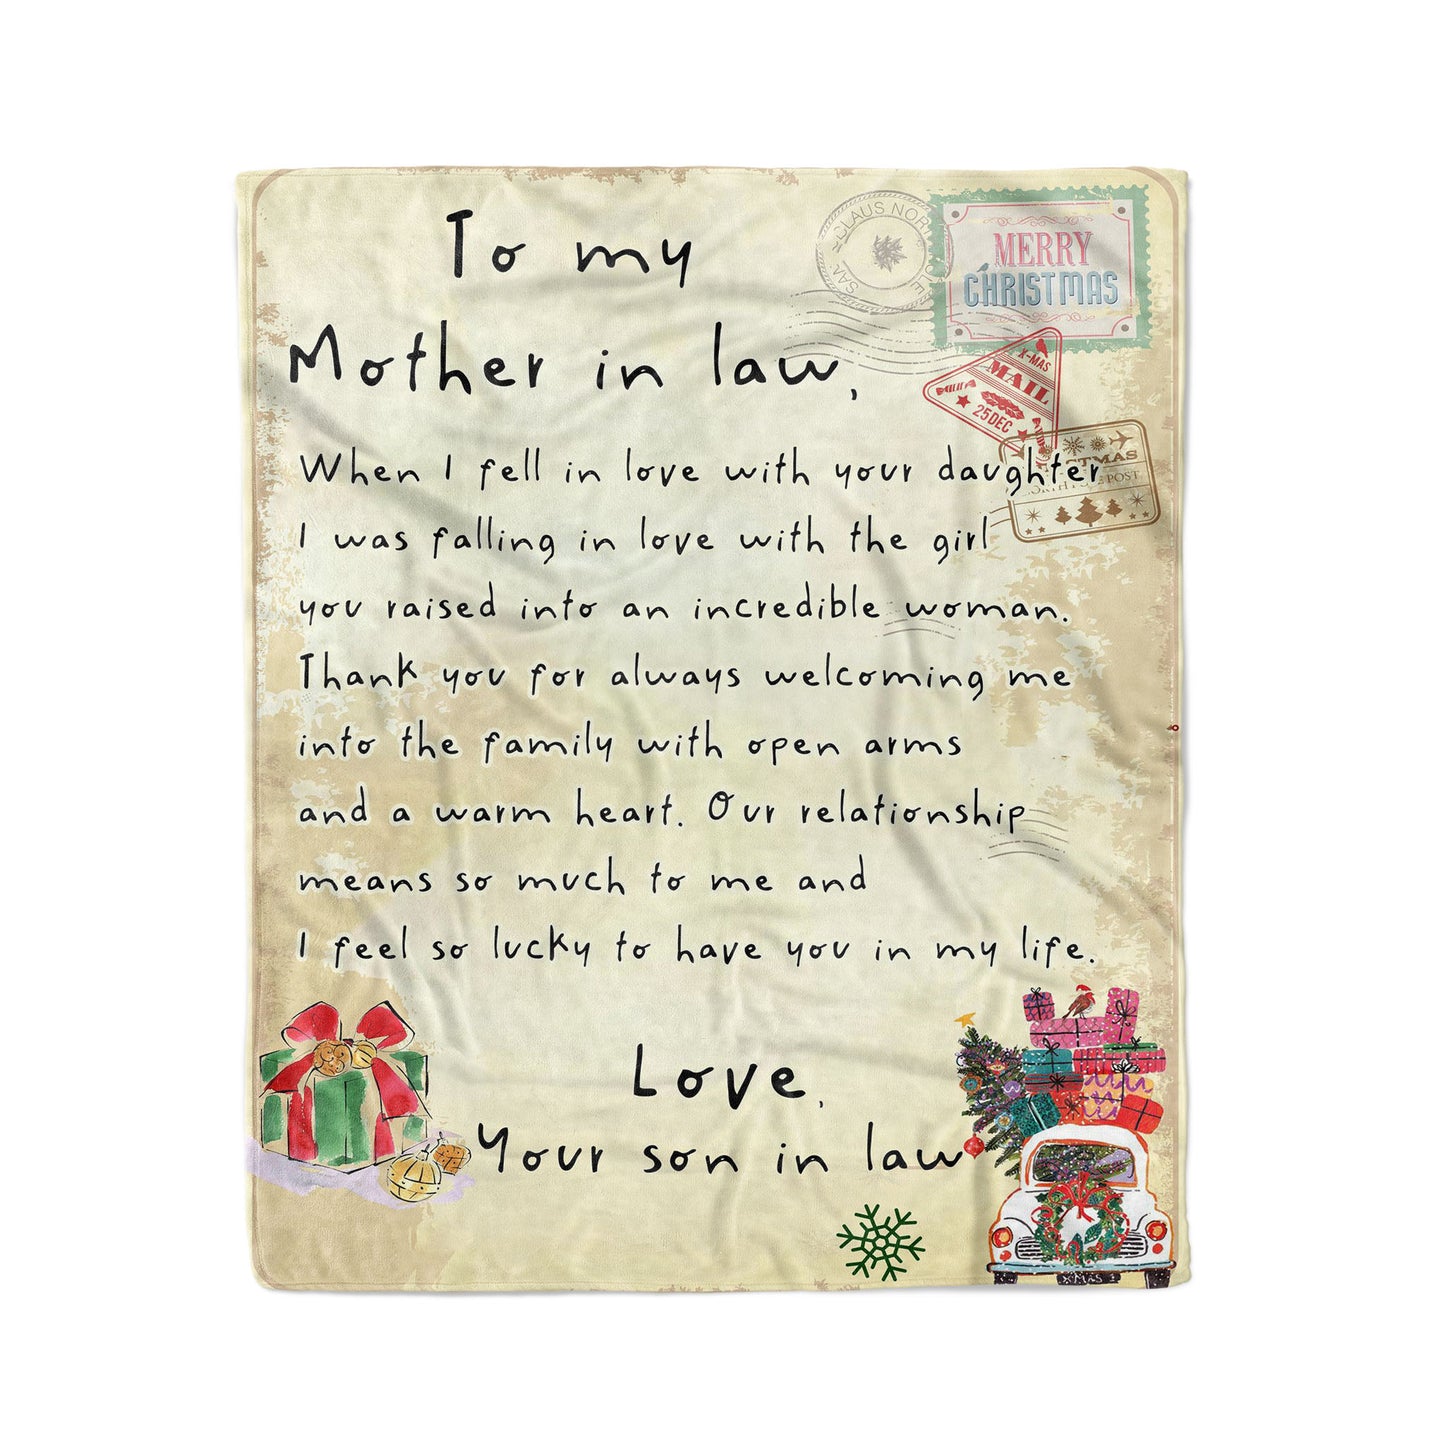 To my
Mother in law,
When I fell in love with your daughter
I was falling in love with the girl
you raised into an incredible woman.
Thank you for always welcoming me
into the family with open arms
and a warm heart. Our relationship
means so much to me and
I feel so lucky to have you in my life.
Love,
Your son in law
CLAUS NOR
MERRY
CHRISTMAS
X-MAS
MAIL
25DEC
POST
X-MAS